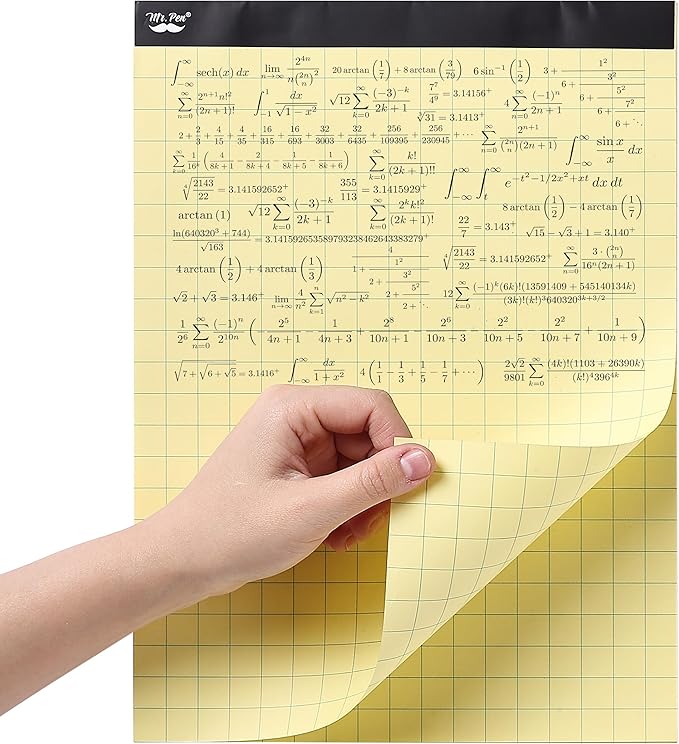 Mr. Pen®
∫_{-∞}^{∞} sech(x) dx   lim_{n→∞} 2^{4n} / (n\binom{2n}{n}^2)   20 arctan(1/7) + 8 arctan(3/79)   6 sin^{-1}(1/2)   3 + 1^2/(6 + 3^2/(6 + 5^2/(6 + 7^2/(6 + ⋱))))
∑_{n=0}^{∞} 2^{n+1}n!^2/(2n+1)!   ∫_{-1}^{1} dx/√(1-x^2)   √12 ∑_{k=0}^{∞} (-3)^{-k}/(2k+1)   7^7/4^9 = 3.14156^+   4∑_{n=0}^{∞} (-1)^n/(2n+1)
∛31 = 3.1413^+
2 + 2/3 + 4/15 + 4/35 + 16/315 + 16/693 + 32/3003 + 32/6435 + 256/109395 + 256/230945 + ···   ∑_{n=0}^{∞} 2^{n+1}/(\binom{2n}{n}(2n+1))   ∫_{-∞}^{∞} sin x/x dx
∑_{k=0}^{∞} 1/16^k (4/(8k+1) - 2/(8k+4) - 1/(8k+5) - 1/(8k+6))   ∑_{k=0}^{∞} k!/(2k+1)!!
∜(2143/22) = 3.141592652^+   355/113 = 3.1415929^+   ∫_{-∞}^{∞} ∫_{t}^{∞} e^{-t^2-1/2x^2+xt} dx dt
arctan(1)   √12 ∑_{k=0}^{∞} (-3)^{-k}/(2k+1)   ∑_{k=0}^{∞} 2^k k!^2/(2k+1)!   8 arctan(1/2) - 4 arctan(1/7)
22/7 = 3.143^+   √15 - √3 + 1 = 3.140^+
ln(640320^3 + 744)/√163 = 3.14159265358979323846264338​3279^+
∜(2143/22) = 3.141592652^+   ∑_{n=0}^{∞} 3·\binom{2n}{n}/(16^n(2n+1))
4 arctan(1/2) + 4 arctan(1/3)   4/(1 + 1^2/(2 + 3^2/(2 + 5^2/(2 + ⋱))))
√2 + √3 = 3.146^+   lim_{n→∞} 4/n^2 ∑_{k=1}^{n} √(n^2 - k^2)   12∑_{k=0}^{∞} (-1)^k(6k)!(13591409 + 545140134k)/((3k)!(k!)^3 640320^{3k+3/2})
1/2^6 ∑_{n=0}^{∞} (-1)^n/2^{10n} (-2^5/(4n+1) - 1/(4n+3) + 2^8/(10n+1) - 2^6/(10n+3) - 2^2/(10n+5) - 2^2/(10n+7) + 1/(10n+9))
√(7 + √(6 + √5)) = 3.1416^+   ∫_{-∞}^{∞} dx/(1+x^2)   4(1/1 - 1/3 + 1/5 - 1/7 + ···)   2√2/9801 ∑_{k=0}^{∞} (4k)!(1103 + 26390k)/((k!)^4 396^{4k})